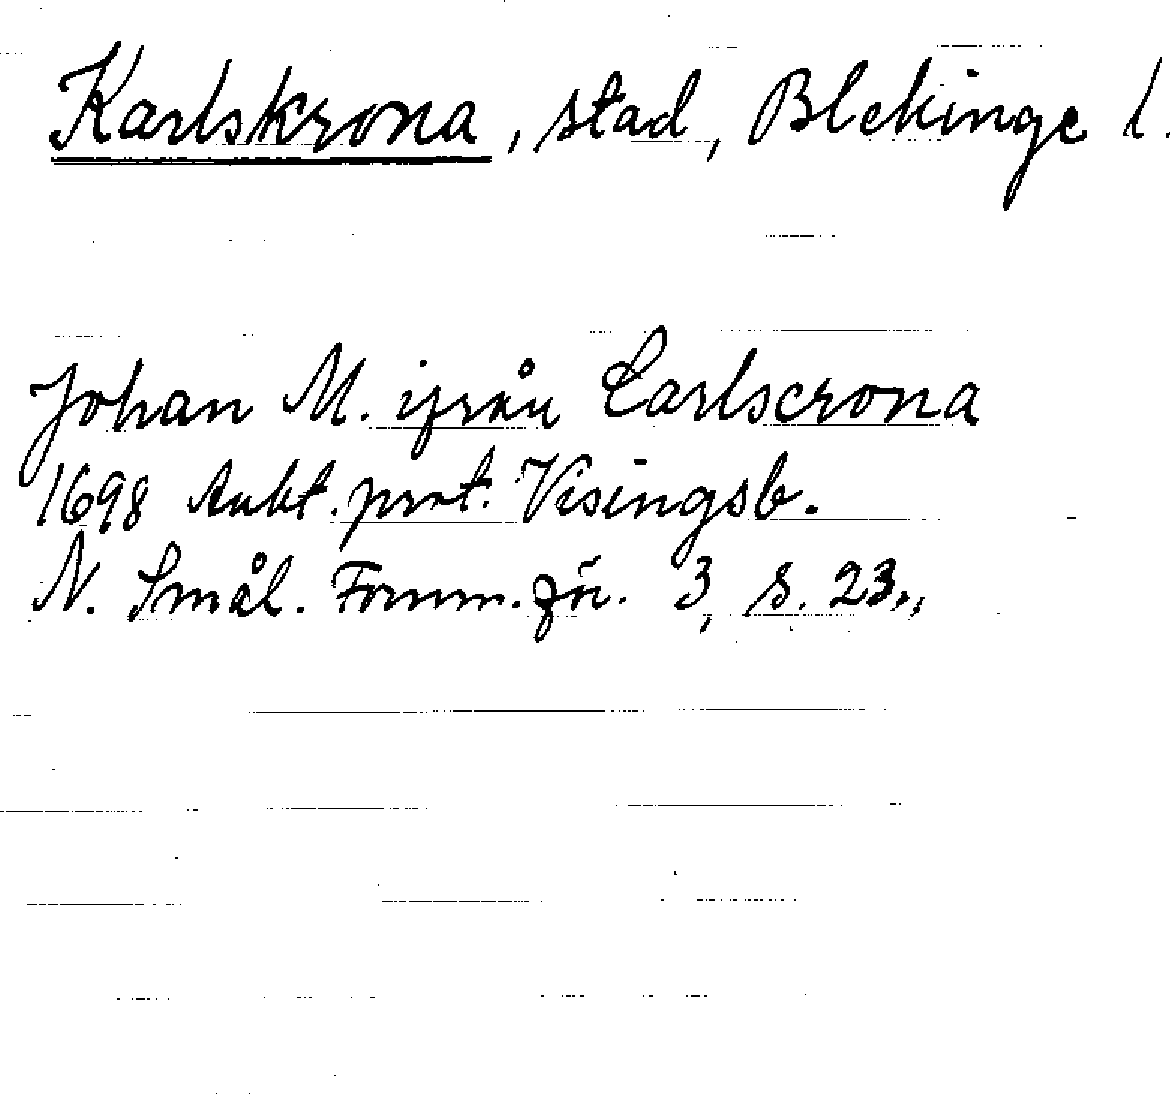 Karlskrona, stad, Blekinge l.
Johan M. ifrån Carlscrona
1698 Aukt. prot. Visingsb.
N. Smål. Fornm. för. 3, s. 23.,